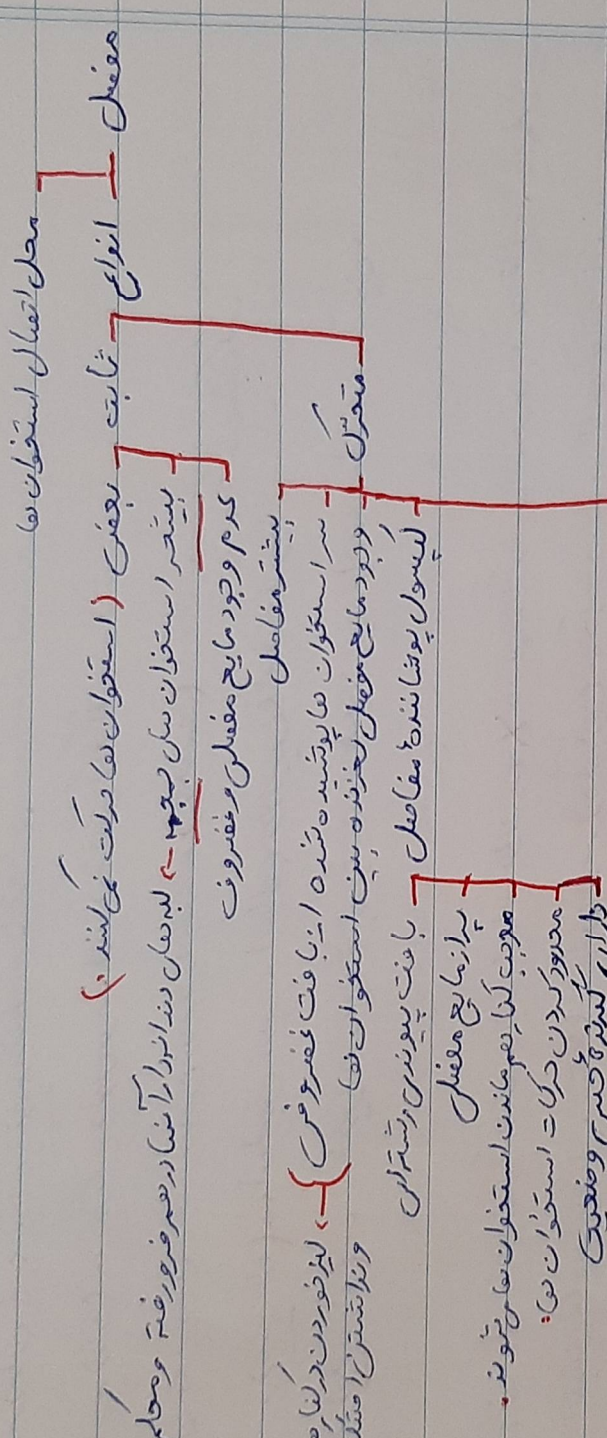 مفصل
محل اتصال استخوان ها
انواع
ثابت
بعضی (استخوان ها حرکت نمی کنند.)
بیشتر استخوان های جمجمه ← لبه های دندانه دار آنها در هم فرو رفته و محکم
عدم وجود مایع مفصلی و غضروف
متحرّک
بیشتر مفاصل
سر استخوان ها پوشیده شده از بافت غضروفی
وجود مایع مفصلی لغزنده بین استخوان ها
← لیز خوردن در کنار
و نداشتن
کپسول پوشاننده مفاصل
بافت پیوندی رشته ای
پر از مایع مفصلی
موجب کنار هم ماندن استخوان ها می شوند.
محدود کردن حرکات استخوان ها.
دارای گیرندهٔ حس وضعیت